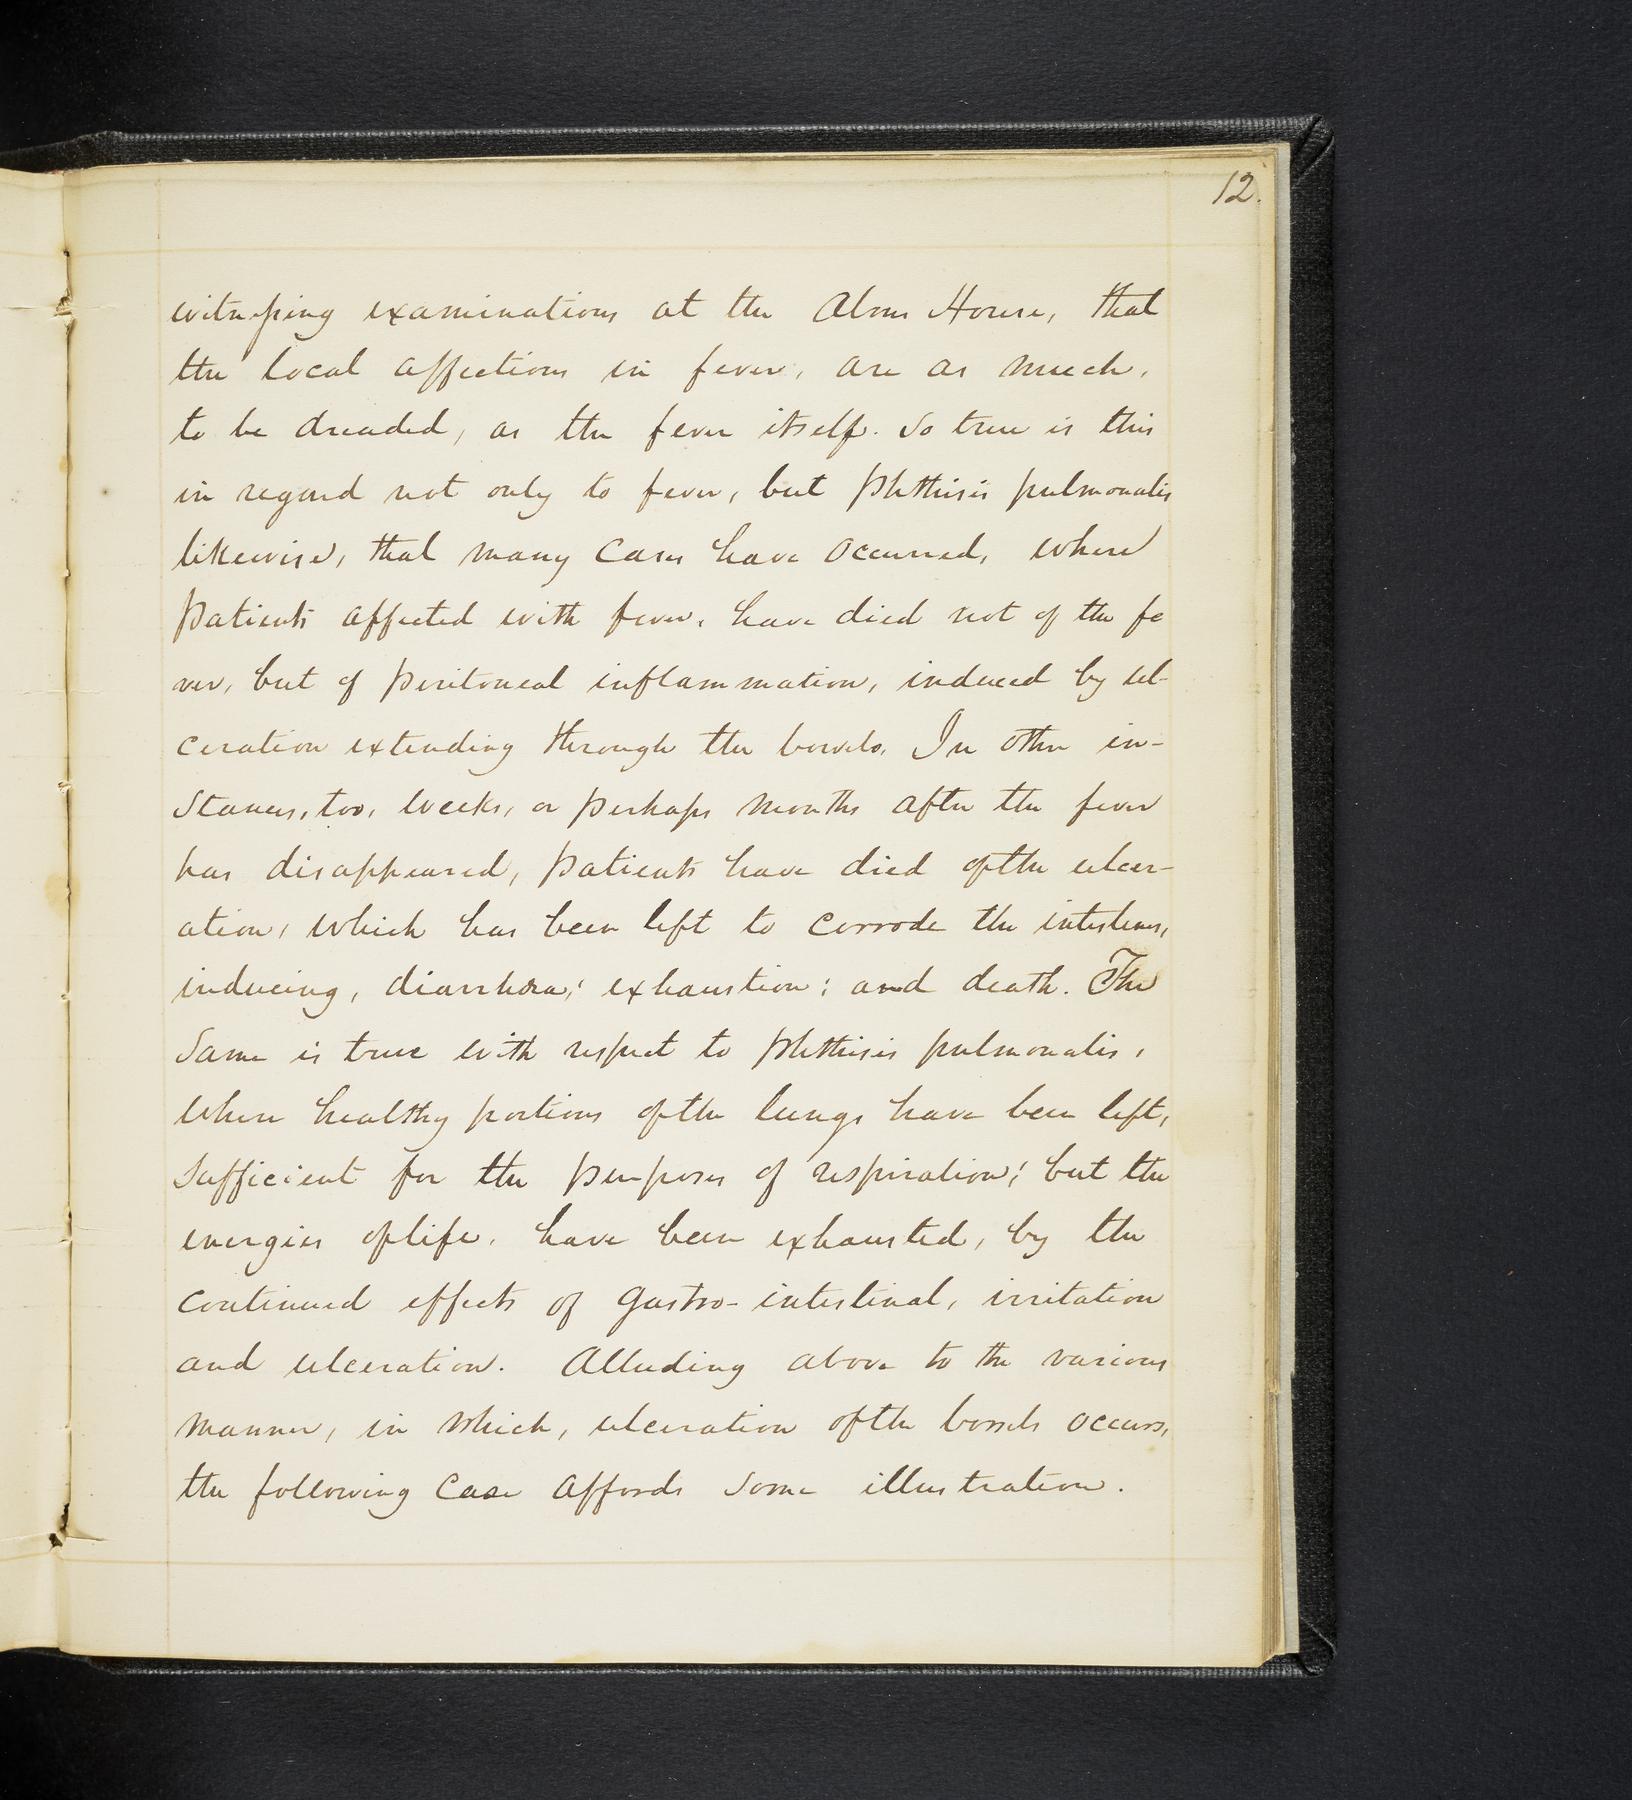 12.
witnessing examinations at the Alms House, that
the local affections in fever, are as much,
to be dreaded, as the fever itself. So true is this
in regard not only to fever, but Phthisis pulmonalis
likewise, that many cases have occurred, where
patients affected with fever, have died not of the fe
ver, but of peritoneal inflammation, induced by ul-
ceration extending through the bowels. In other in-
stances, too, weeks, or perhaps months after the fever
has disappeared, patients have died of the ulcer-
ation, which has been left to corrode the intestines,
inducing, diarrhœa; exhaustion; and death. The
same is true with respect to phthisis pulmonalis,
where healthy portions of the lungs have been left,
sufficient for the purposes of respiration; but the
energies of life, have been exhausted, by the
continued effects of gastro-intestinal, irritation
and ulceration. Alluding above to the various
manner, in which, ulceration of the bowels occurs,
the following case affords some illustration.